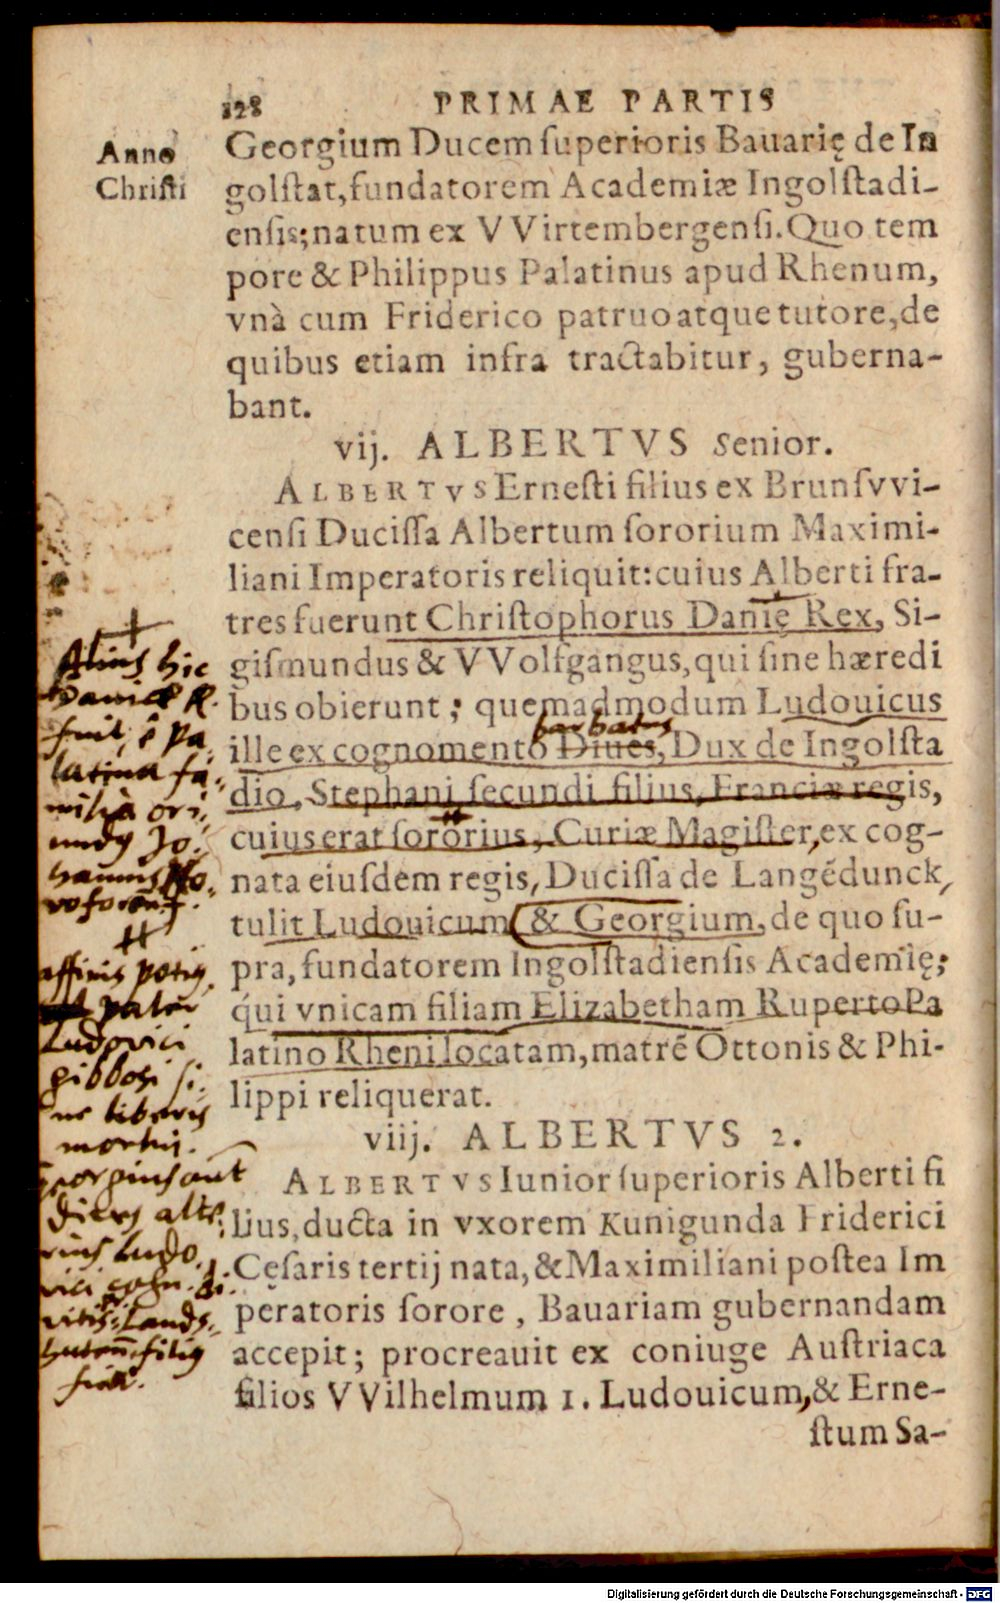 128 PRIMAE PARTIS
Anno
Christi
Georgium Ducem ſuperioris Bauarię de In
golſtat, fundatorem Academiæ Ingolſtadi-
enſis; natum ex VVirtembergenſi. Quo tem
pore & Philippus Palatinus apud Rhenum,
vnà cum Friderico patruo atque tutore, de
quibus etiam infra tractabitur, guberna-
bant.
vij. ALBERTVS Senior.
ALBERTVS Erneſti filius ex Brunſvvi-
cenſi Duciſſa Albertum ſororium Maximi-
liani Imperatoris reliquit: cuius Alberti fra-
tres fuerunt Chriſtophorus Danię Rex, Si-
giſmundus & VVolfgangus, qui ſine hæredi
bus obierunt; quemadmodum Ludouicus
barbatus
ille ex cognomento Diues, Dux de Ingolſta
dio, Stephani ſecundi filius, Franciæ regis,
cuius erat ſororius, Curiæ Magiſter, ex cog-
nata eiuſdem regis, Duciſſa de Langēdunck,
tulit Ludouicum & Georgium, de quo ſu-
pra, fundatorem Ingolſtadienſis Academię;
qui vnicam filiam Elizabetham Ruperto Pa
latino Rheni locatam, matrē Ottonis & Phi-
lippi reliquerat.
viij. ALBERTVS 2.
ALBERTVS Iunior ſuperioris Alberti fi
lius, ducta in vxorem Kunigunda Friderici
Cęſaris tertij nata, & Maximiliani poſtea Im
peratoris ſorore, Bauariam gubernandam
accepit; procreauit ex coniuge Auſtriaca
filios VVilhelmum 1. Ludouicum, & Erne-
ſtum Sa-
Alius hic
Daniæ R.
fuit, è Pa-
latina fa-
milia ori-
undus Jo-
hannis
affinis potius
pater
Ludovici
gibbosi si-
ne liberis
mortui.
Georgius aut
divitis alte-
rius Ludo-
vici cogn. di-
vitis Lands-
hutens filius
fuit.
Digitalisierung gefördert durch die Deutsche Forschungsgemeinschaft - DFG